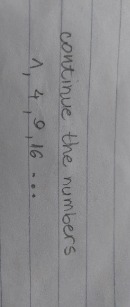 continue the numbers
1, 4, 9, 16 ....